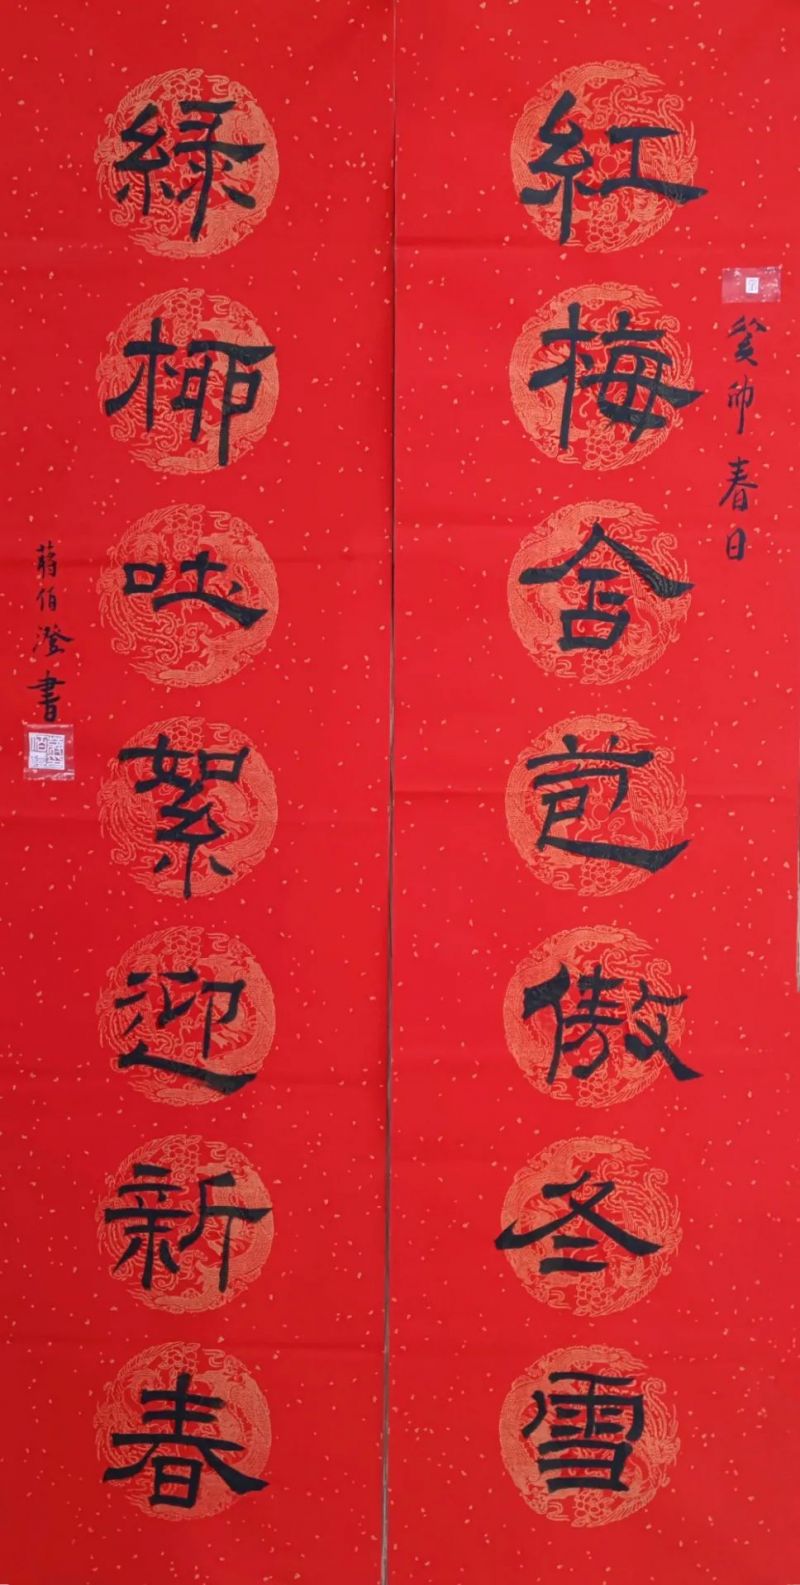 紅梅含苞傲冬雪
癸卯春日
綠柳吐絮迎新春
蔣伯澄書